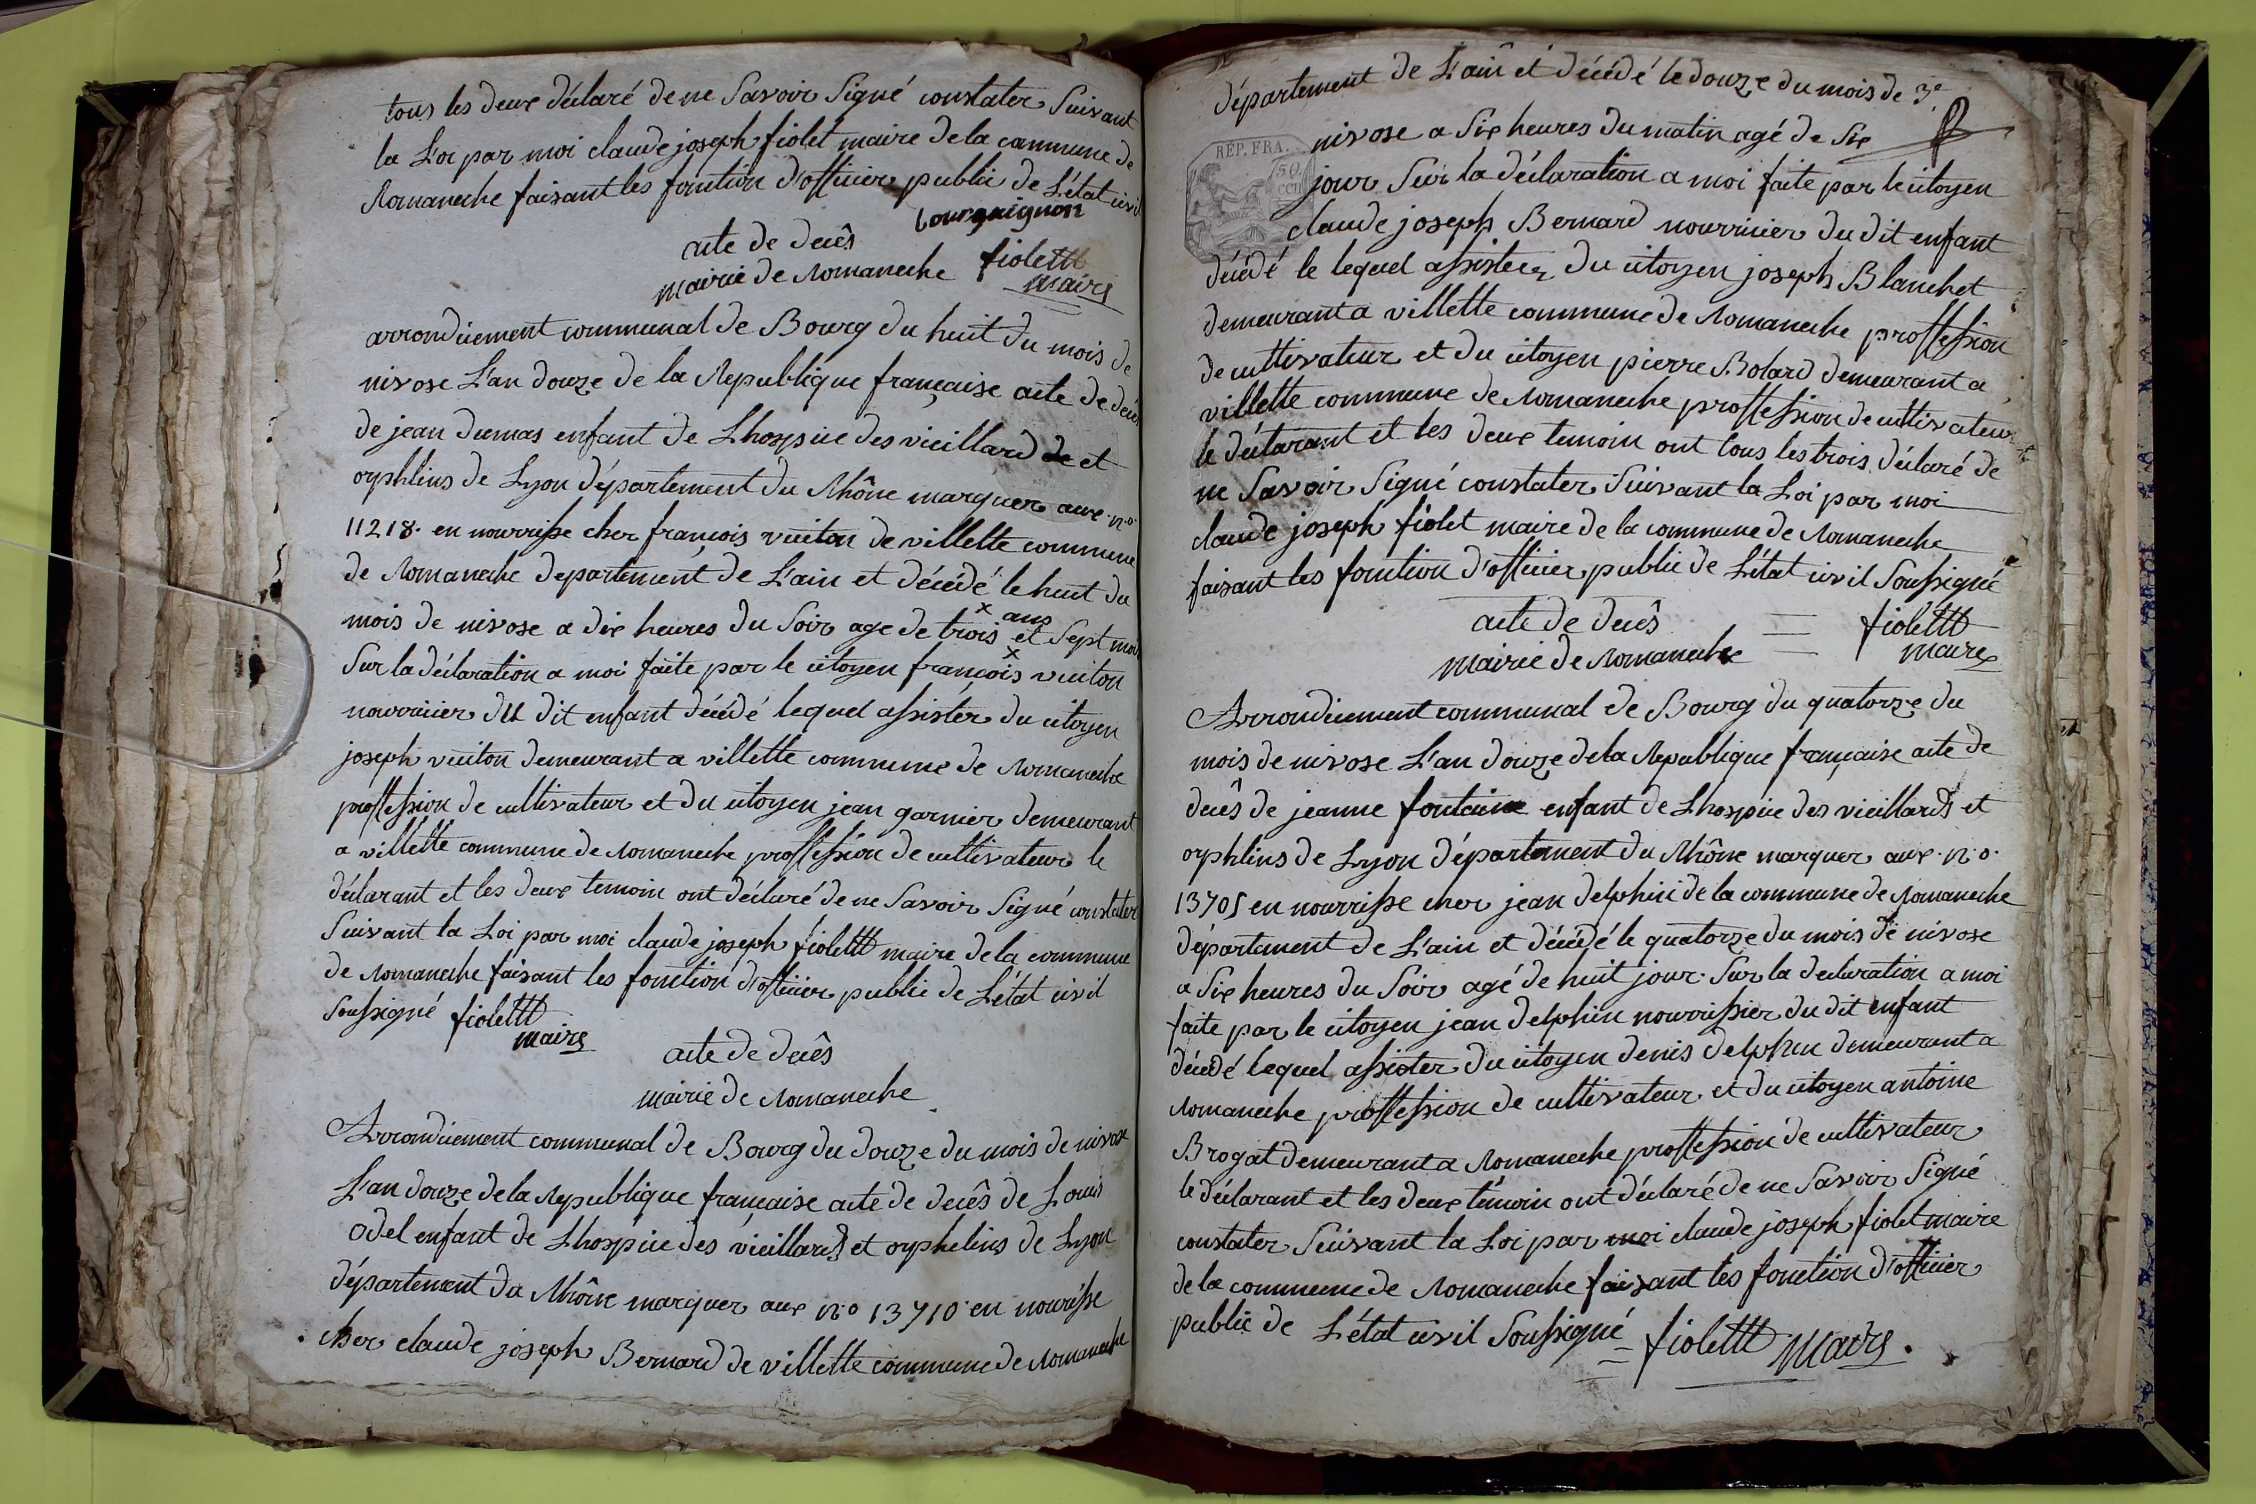 tous les deux déclaré de ne Savoir Signé constater Suivant
la Loi par moi claude joseph fiolet maire de la commune de
Romaneche faisant les fonction d'officier public de L'état civil
bourguignon
acte de decês
fiolettt
mairie de Romaneche
maire
arrondicement communal de Bourg du huit du mois de
nivose L'an douze de la Republique française acte de decês
de jean dumas enfant de Lhospice des vieillard de et
orphlins de Lyon département du Rhône marquer aux n.o.
11218. en nourrisse cher françois vuiton de villette commune
de Romaneche departement de L'ain et décédé le huit du
mois de nivose a dix heures du Soir age de trois x ans et Sept mois
Sur la déclaration a moi faite par le citoyen françois vuiton
nourricier du dit enfant décédé lequel assister du citoyen
joseph vuiton demeurant a villette commune de Romaneche
proffession de cultivateur et du citoyen jean garnier demeurant
a villette commune de Romaneche proffession de cultivateur le
déclarant et les deux temoin ont déclaré de ne Savoir Signé constater
Suivant la Loi par moi claude joseph fiolettt maire de la commune
de Romaneche faisant les fonction d'officier public de L'état civil
Soussigné fiolettt
maire
acte de decês
mairie de Romaneche
Arrondicement communal de Bourg du douze du mois de nivose
L'an douze de la Republique française acte de decês de Louis
Odel enfant de Lhospice des vieillards et orphelins de Lyon
département du Rhône marquer aux n.o 13710 en nourisse
cher claude joseph Bernard de villette commune de Romaneche
département de L'ain et décédé le douze du mois de 3e
nivose a Six heures du matin agé de Six
RÉP. FRA.
50
jour Sur la déclaration a moi faite par le citoyen
claude joseph Bernard nourricier du dit enfant
décédé le lequel assister du citoyen joseph Blanchet
demeurant a villette commune de Romaneche proffession
de cultivateur et du citoyen pierre Bolard demeurant a
villette commune de Romaneche proffession de cultivateur
le déclarant et les deux temoin ont tous les trois déclaré de
ne Savoir Signé constater Suivant la Loi par moi
claude joseph fiolet maire de la commune de Romaneche
faisant les fonction d'officier public de L'état civil Soussigné
acte de decês
fiolettt
mairie de Romaneche
maire
Arrondicement communal de Bourg du quatorze du
mois de nivose L'an douze de la Republique française acte de
decês de jeanne fontaine enfant de Lhospice des vieillards et
orphlins de Lyon département du Rhône marquer aux n.o.
13705 en nourrisse cher jean delphin de la commune de Romaneche
département de L'ain et décédé le quatorze du mois de nivose
a Six heures du Soir agé de huit jour. Sur la declaration a moi
faite par le citoyen jean delphin nourrissier du dit enfant
décédé lequel assister du citoyen denis delphin demeurant a
Romaneche proffession de cultivateur et du citoyen antoine
Brogat demeurant a Romaneche proffession de cultivateur
le déclarant et les deux témoin ont déclaré de ne Savoir Signé
constater Suivant la Loi par moi claude joseph fiolet maire
de la commune de Romaneche faisant les fonction d'officier
public de L'état civil Soussigné = fiolettt maire.